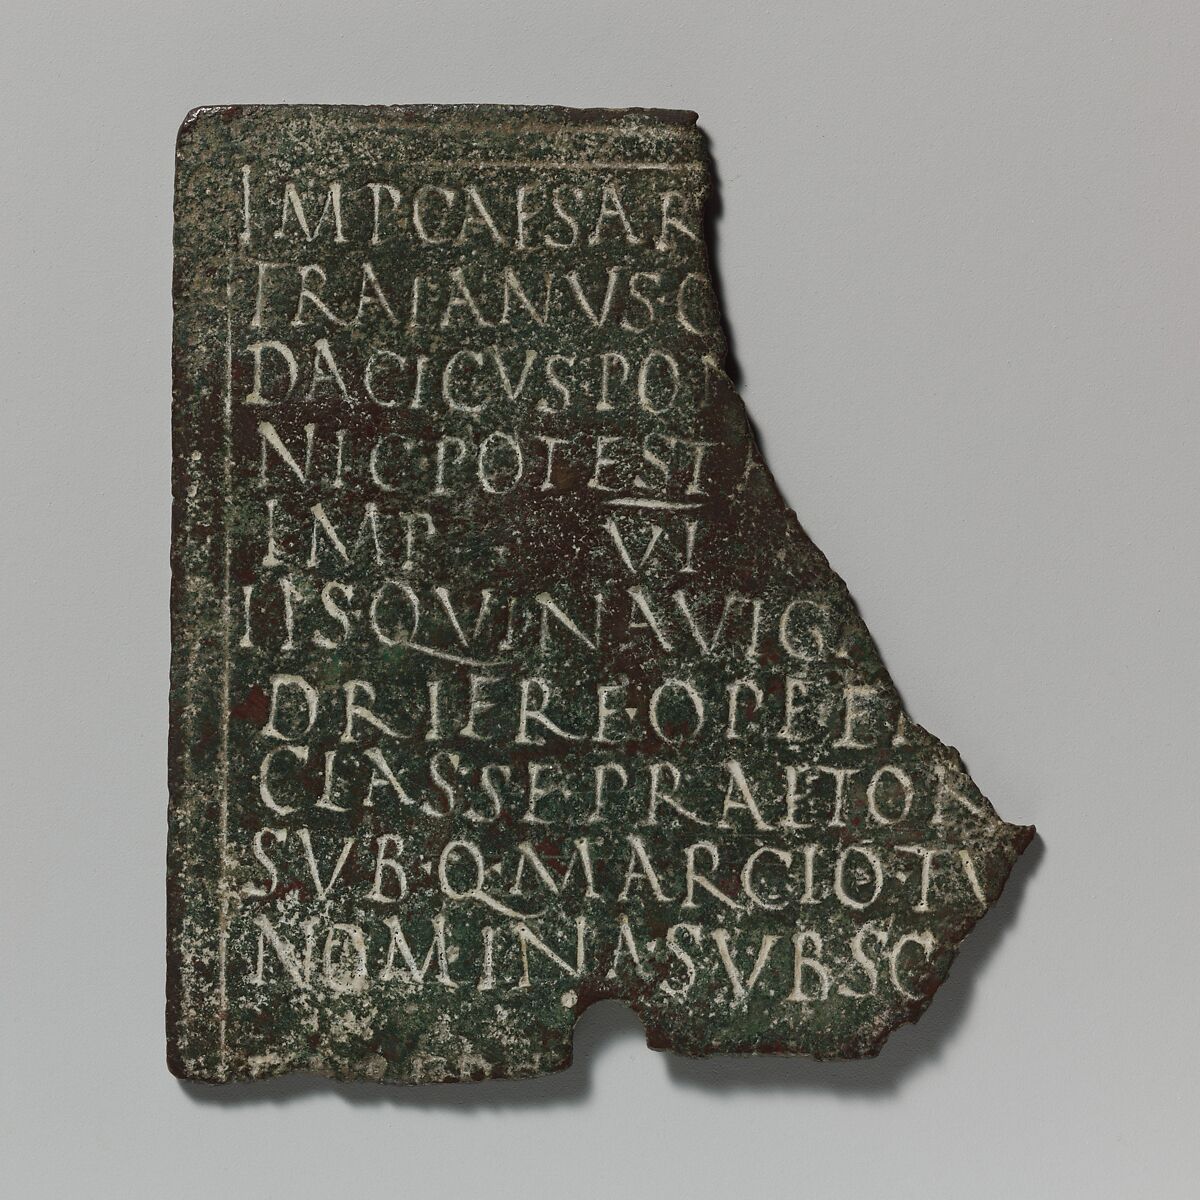 IMP CAESAR
TRAIANVS·G
DACICVS·PON
NIC POTEST A
IMP VI
IIS QVI NAVIGA
DRIERE·OPEEN
CLAS·SE PRAETON
SVB·Q·MARCIO·TV
NOM·INA·SVBSC